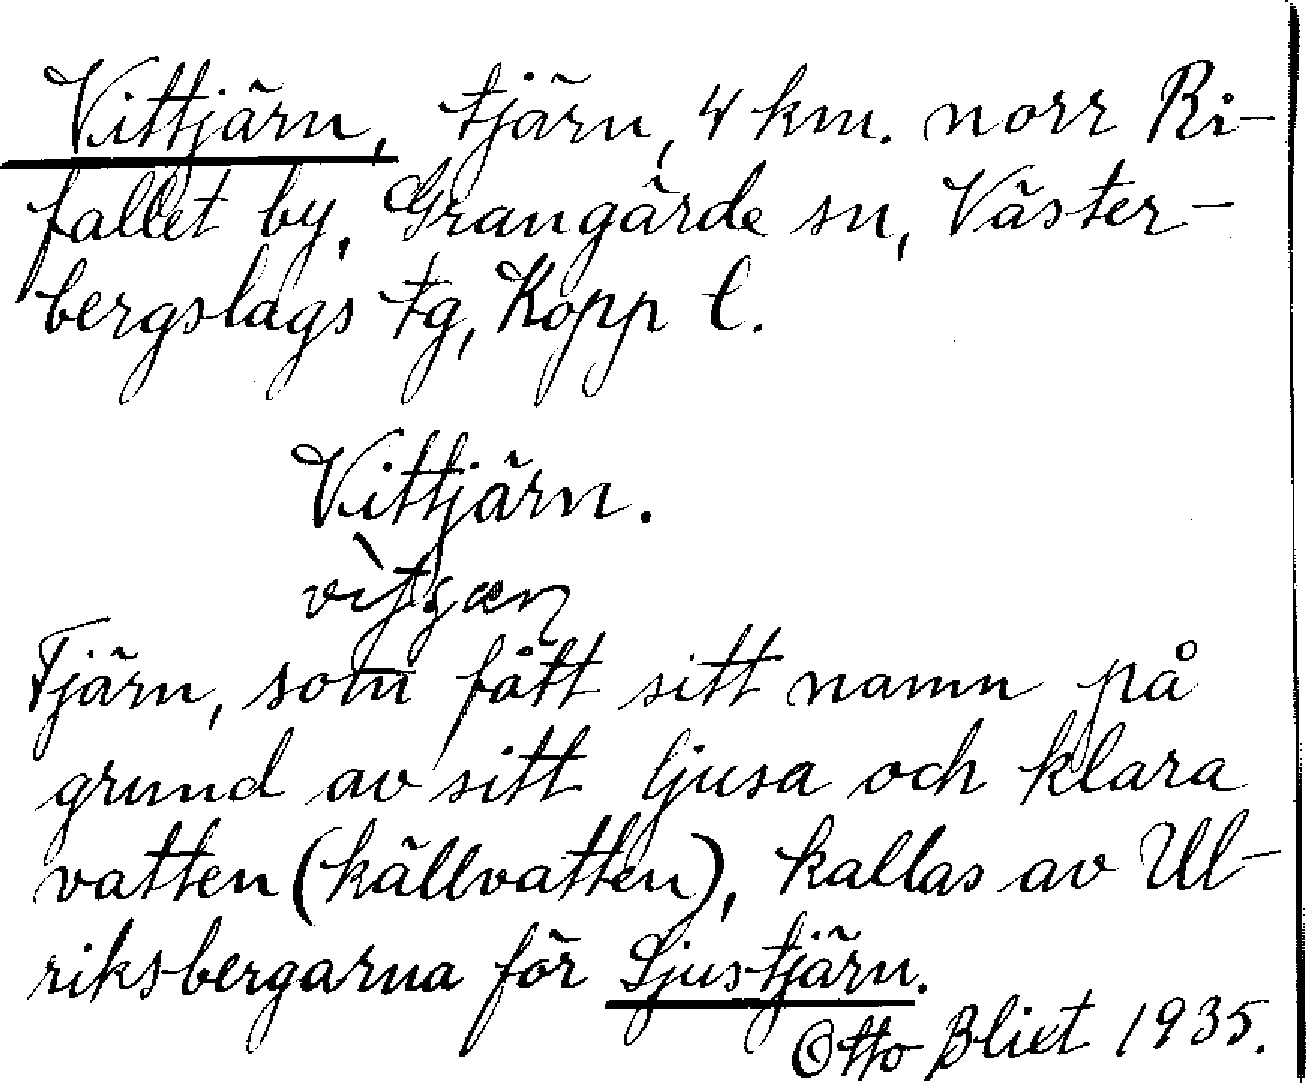 Vittjärn, tjärn, 4 km. norr Ri-
fallet by, Grangärde sn, Väster-
bergslags tg, Kopp l.
Vittjärn.
Tjärn, som fått sitt namn på
grund av sitt ljusa och klara
vatten (källvatten), kallas av Ul-
riksbergarna för Ljustjärn.
Otto Blixt 1935.